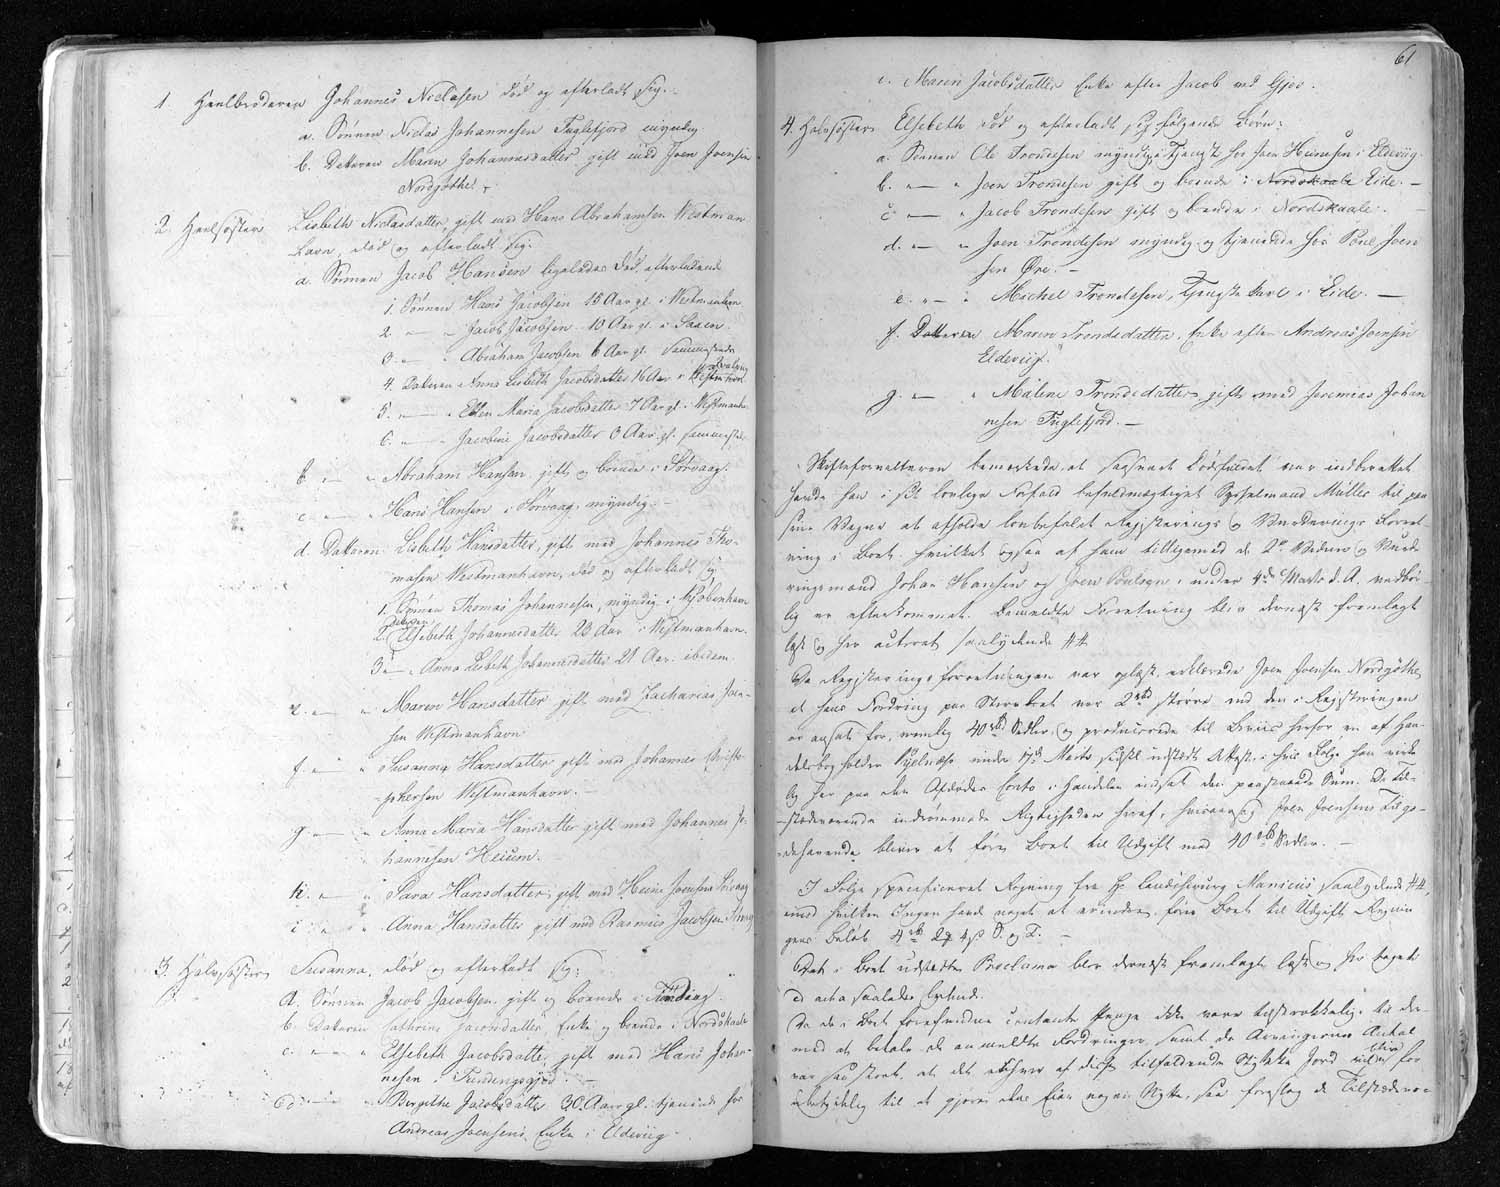 1. Heelbroderen Johannes Niclasen død og efterladt sig:
a. Sønnen Niclas Johannesen Fuglefjord myndig
b. Datteren Maren Johannesdatter gift med Joen Joensen
Nordgøthe.
2. Heelsøster Lisbeth Niclasdatter, gift med Hans Abrahamsen Westman
havn, død og efterladt sig:
a. Sønnen Jacob Hansen ligeledes død, efterladende
1. Sønnen Hans Jacobsen 15 Aar gl. i Westmanhavn
2. — " Jacob Jacobsen 10 Aar gl. i Saxen.
3. — " Abraham Jacobsen 6 Aar gl. sammesteds
4. Datteren Anna Lisbeth Jacobsdatter 16 Aar i Westmanhavn
5. — " Ellen Maria Jacobsdatter 7 Aar gl. i Westmanh.
6. — " Jacobine Jacobsdatter 3 Aar gl. sammesteds
b. — " Abraham Hansen gift og boende i Sørvaag.
c. — " Hans Hansen i Sørvaag, myndig. —
d. Datteren Lisbeth Hansdatter, gift med Johannes Tho-
masen Westmanhavn, død og efterladt sig
1. Sønnen Thomas Johannesen, myndig i Kjøbenhavn
2. Datteren Elsebeth Johannesdatter 23 Aar i Westmanhavn.
3. — " Anna Lisbeth Johannesdatter 21 Aar ibidem.
e. — " Maren Hansdatter gift med Zacharias Joen-
sen Westmanhavn
f. — " Susanna Hansdatter gift med Johannes Christo-
phersen Westmanhavn. —
g. — " Anna Maria Hansdatter gift med Johannes Jo-
hannesen Heium. —
h. — " Sara Hansdatter, gift med Heine Joensen Sørvaag
i. — " Anna Hansdatter gift med Rasmus Jacobsen
3. Halvsøster Susanna, død og efterladt sig:
a. Sønnen Jacob Jacobsen gift og boende i Funding.
b. Datteren Cathrine Jacobsdatter, Enke og boende i Nordskaale
c. — " Elsebeth Jacobsdatter, gift med Hans Johan-
nesen i Fundingsgjord. —
d. — " Birgithe Jacobsdatter 30 Aar gl. tjenende hos
Andreas Joensens Enke i Eldeviig
61
e. Maren Jacobsdatter Enke efter Jacob ved Gjov.
4. Halvsøster Elsebeth død og efterladt sig følgende Børn:
a. Sønnen Ole Trondesen myndig i Tjeneste hos Joen Heinesen i Eldeviig.
b. — " Joen Trondesen gift og boende i Nordskaale Eide. —
c. — " Jacob Trondesen gift og boende i Nordskaale. —
d. — " Joen Trondesen myndig og tjenende hos Poul Joen
sen Øre. —
e. — " Michel Trondesen, Tjenestekarl i Eide. —
f. Datteren Maren Trondsdatter, Enke efter Andreas Joensen
Eldeviig.
g. — " Malene Trondsdatter gift med Jeremias Johan
nesen Fuglefjord. —
Skifteforvalteren bemærkede, at saasnart Dødsfaldet var indberettet
havde han i sit lovlige Forfald befuldmægtiget Sysselmand Müller til paa
sine Vegne at afholde lovbefalet Registrerings og Vurderings Forret-
ning i Boet, hvilket ogsaa af ham tilligemed de 2de Vidner og Vurde
ringsmænd Johan Hansen og Joen Poulsen under 4de Marts d. A. vedbør-
lig er efterkommet. Bemeldte Forretning blev dernæst fremlagt
læst og her acteret saalydende ##
Da Registreringsforretningen var oplæst, erklærede Joen Joensen Nordgøthe
at hans Fordring paa Sterboet var 2 rbd større end den i Registreringen
er ansat for, nemlig 40 rbd Sedler, og producerede til Beviis herfor en af Han-
delsbogholder under 17de Marts sidstl. udstædt Attest, i hvis Følge han virke
lig har paa den Afdødes Conto i Handelen indsat den paastaaede Sum. De Til-
stedeværende indrømmede Rigtigheden heraf, hvorpaa Joen Joensens Tilgo-
dehavende bliver at føre Boet til Udgift med 40 rbd Sedler. —
I Følge specificeret Regning fra Hr Landchirurg Manicus saalydende ##
imod hvilken Ingen havde noget at erindre, føres Boet til Udgift Regnin
gens Beløb 4 rbd 2 4 s S. og T. —
Det i Boet udstædte Proclama blev dernæst fremlagt læst og her taget
ad acta saaledes lydende.
Da de i Boet forefundne contante Penge ikke vare tilstrækkelige til der-
med at betale de anmeldte Fordringer, samt da Arvingernes Antal
var saa stort, at det Enhver af disse tilfaldende Stykke Jord vilde blive for
ubetydelig til at gjøre dem Eier nogen Nytte, saa foreslog de Tilstedevæ-